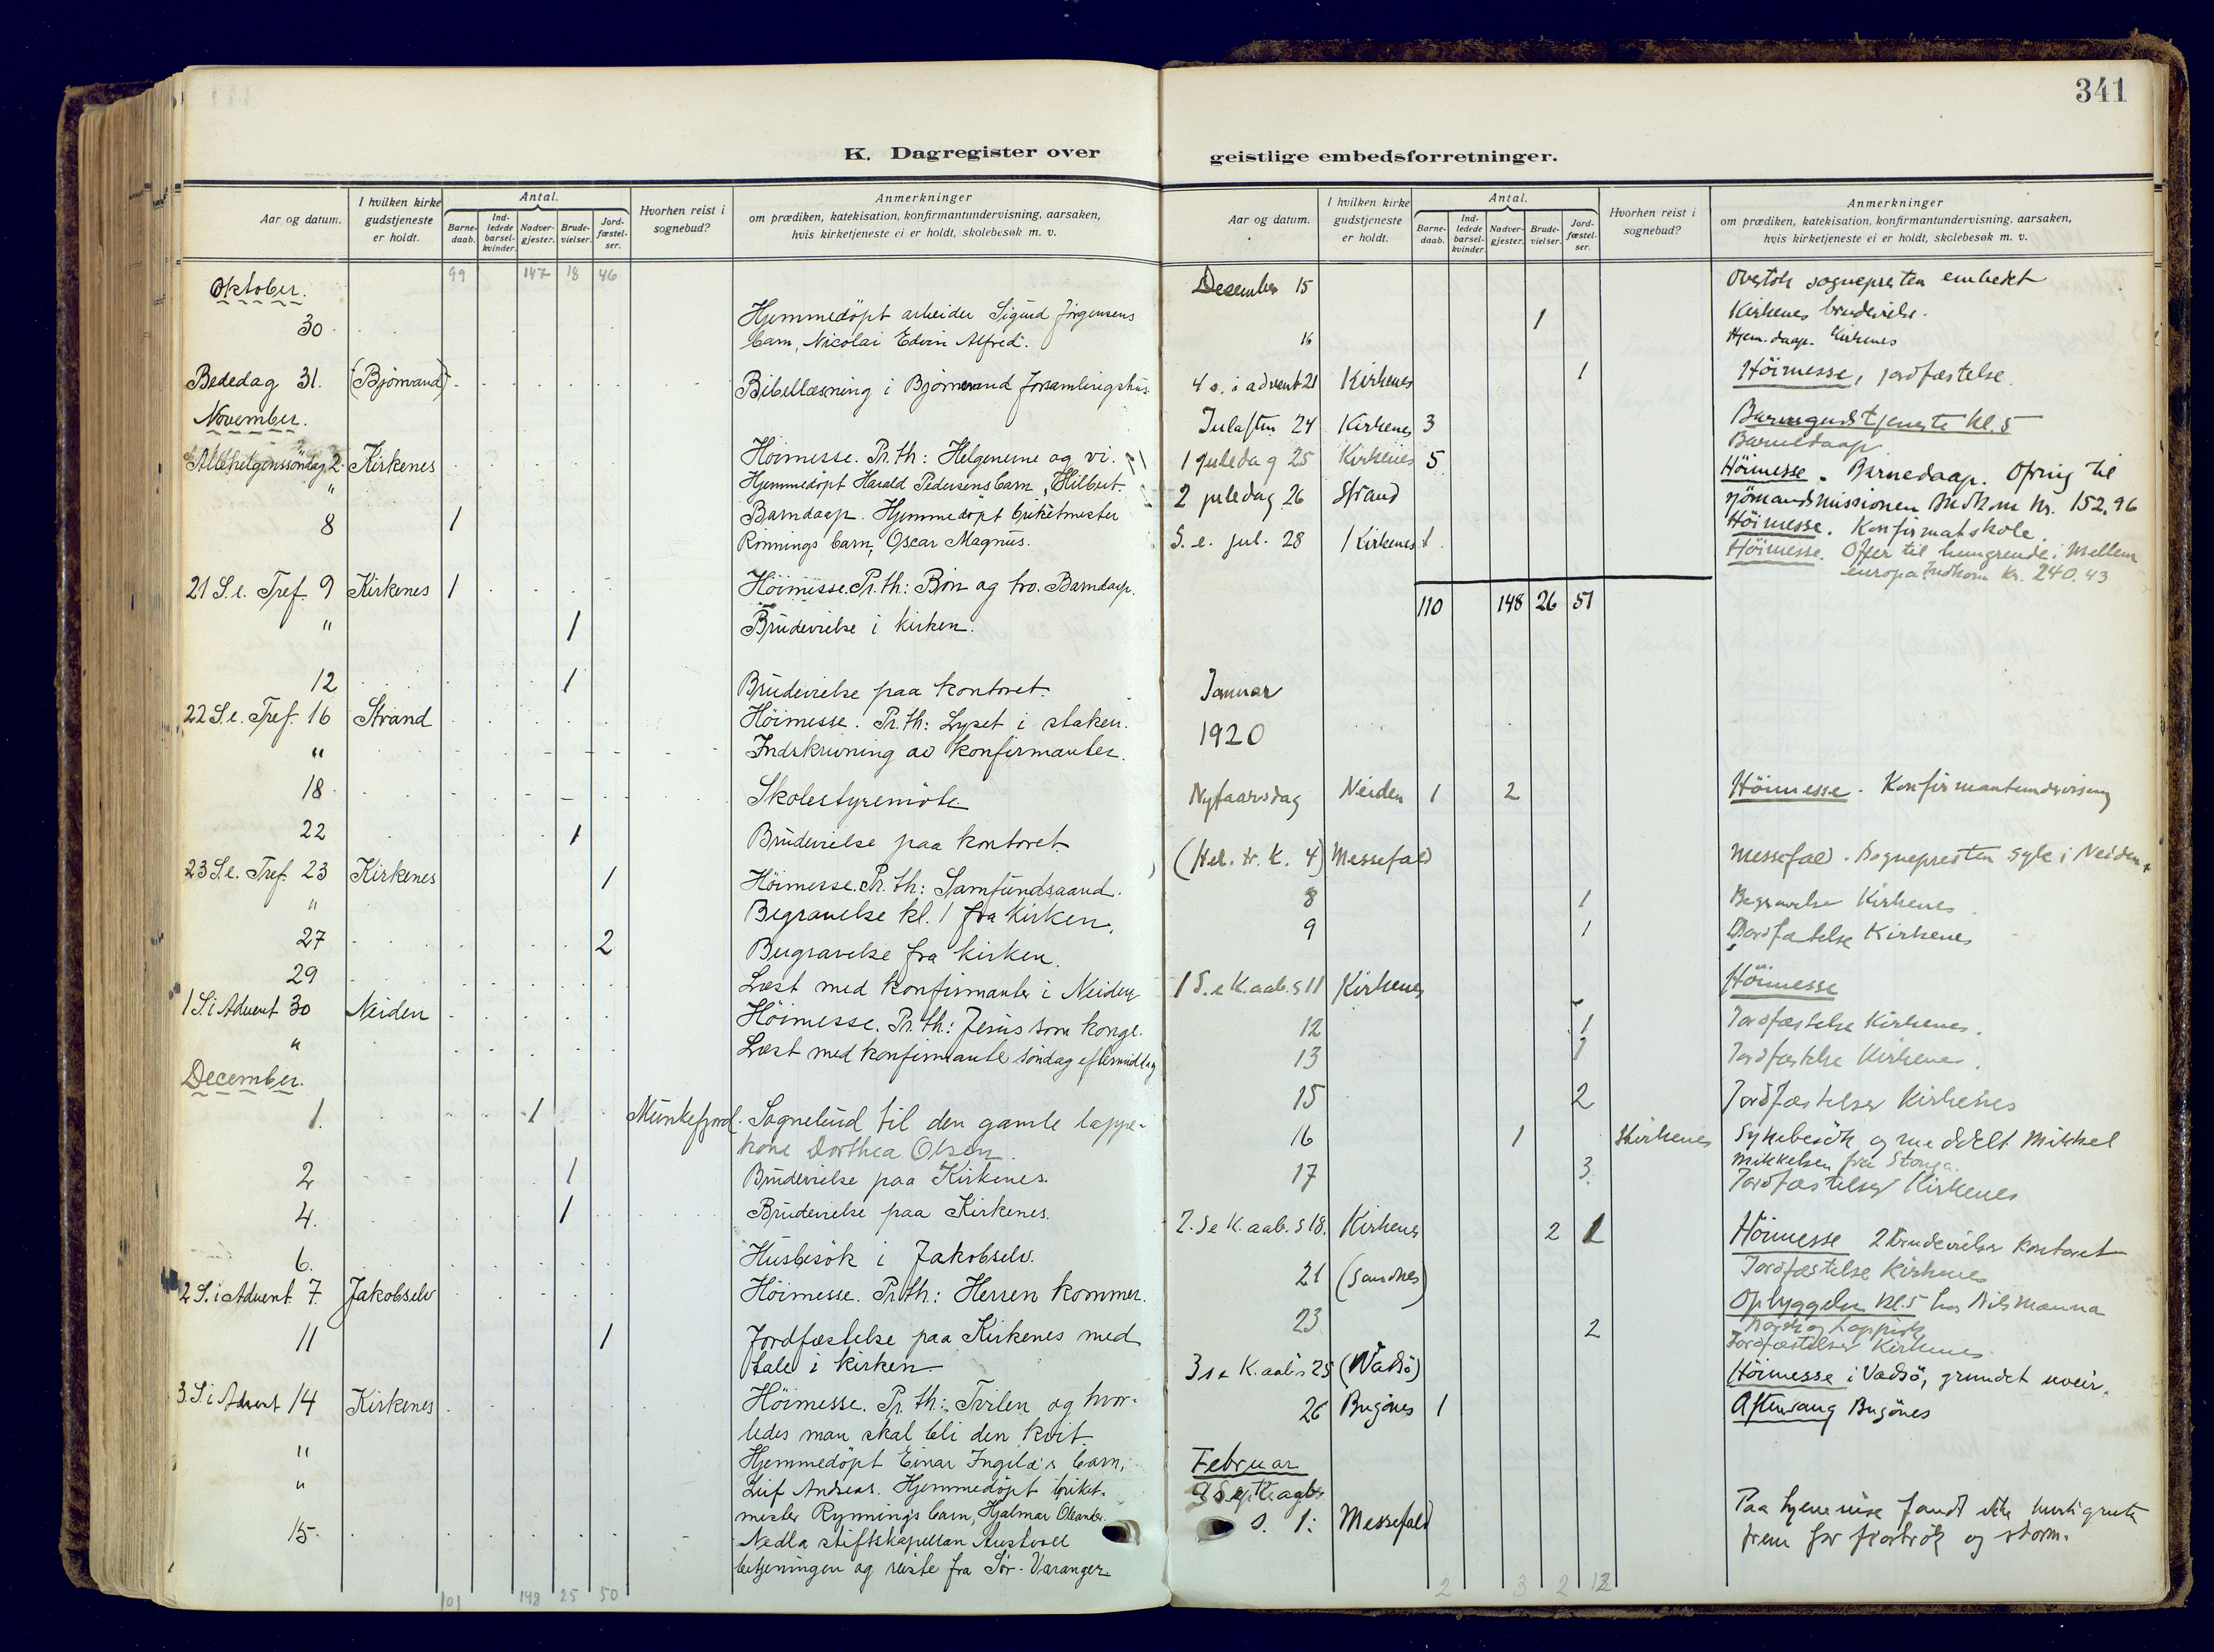 341
K. Dagregister over
geistlige embedsforretninger.
Aar og datum.
I hvilken kirke gudstjeneste er holdt.
Antal.
Barne-daab.
Ind-ledede barsel-kvinder.
Nadver-gjester.
Brude-vielser.
Jord-fæstel-ser.
Hvorhen reist i sognebud?
Anmerkninger
om prædiken, katekisation, konfirmantundervisning, aarsaken,
hvis kirketjeneste ei er holdt, skolebesøk m. v.
99 147 18 46
Oktober.
30 Hjemmedöpt arbeider Sigurd Jörgensens
barn, Nicolai Edvin Alfred.
Bededag 31. (Björnvand) Bibellæsning i Björnevand forsamlingshus.
November.
Allehelgenssöndag 2. Kirkenes Höimesse. Pr. th: Helgenerne og vi.
" Hjemmedöpt Harald Pedersens barn, Hilbert.
8 1 Barndaap. Hjemmedöpt briketmester
Rönnings barn, Oscar Magnus.
21 S. e. Tref. 9 Kirkenes 1 Höimesse. Pr. th: Bön og tro. Barndaap.
" 1 Brudevielse i kirken.
12 1 Brudevielse paa kontoret.
22 S. e. Tref. 16 Strand Höimesse. Pr. th: Lyset i staken.
" Indskrivning av konfirmanter.
18 Skolestyremöte
22 1 Brudevielse paa kontoret.
23 S. e. Tref. 23 Kirkenes 1 Höimesse. Pr. th: Samfundsaand.
" Begravelse kl. 1 fra Kirken.
27 2 Begravelse fra kirken.
29 Læst med konfirmanter i Neiden
1 S. i Advent 30 Neiden Höimesse. Pr. th: Jesus som konge.
" Læst med konfirmante söndag eftermiddag
December.
1. 1 Munkefjord. Sognebud til den gamle lappe-
kone Dorthea Olsen.
2 1 Brudevielse paa Kirkenes.
4. 1 Brudevielse paa Kirkenes.
6. Husbesök i Jakobselv.
2 S. i Advent 7. Jakobselv Höimesse. Pr. th: Herren kommer.
11 1 Jordfæstelse paa Kirkenes med
tale i kirken
3. S. i Advent 14 Kirkenes Höimesse. Pr. th: Tvilen og hvor-
ledes man skal bli den kvit.
" Hjemmedöpt Einar barn,
" Leif Andreas. Hjemmedöpt briket-
mester Rynnings barn, Hjalmar
15. Nedla stiftskapellan Austvoll
betjeningen og reiste fra Sör-Varanger.
101 148 25 50
Aar og datum.
I hvilken kirke gudstjeneste er holdt.
Antal.
Barne-daab.
Ind-ledede barsel-kvinder.
Nadver-gjester.
Brude-vielser.
Jord-fæstel-ser.
Hvorhen reist i sognebud?
Anmerkninger
om prædiken, katekisation, konfirmantundervisning, aarsaken,
hvis kirketjeneste ei er holdt, skolebesøk m. v.
December 15 Overtok sognepresten embedet
1 Kirkenes brudevielse.
16 Hjem.daap. Kirkenes
4 s. i advent 21 Kirkenes 1 Höimesse, jordfæstelse.
Julaften 24 Kirkenes 3 Barnegudstjeneste kl. 5
Barnedaap
1 juledag 25 Kirkenes 5 Höimesse. Barnedaap. Ofring til
sjömandsmissionen Indkom kr. 152,96
2 juledag 26 Strand Höimesse. Konfirmatskole.
S. e. jul. 28 Kirkenes 1 Höimesse. Offer til hungrende i Mellem
europa. Indkom kr. 240.43
110 148 26 51
Januar
1920
Nytaarsdag Neiden 1 2 Höimesse. Konfirmantundervisning
(Hel. tr. k. 4) Messefald Messefald. Sognepresten syk i Neiden.
8 1 Begravelse Kirkenes.
9 1 Jordfæstelse Kirkenes
1 S. e K. aab. s 11 Kirkenes Höimesse
12 1 Jordfæstelse Kirkenes.
13 1 Jordfæstelse Kirkenes.
15 2 Jordfæstelser Kirkenes
16 1 Kirkenes Sykebesök og meddelt Mikkel
Mikkelsen fra
17 3. Jordfæstelser Kirkenes
2. S e K. aab. s 18. Kirkenes 2 1 Höimesse 2 brudevielser kontoret
Jordfæstelse Kirkenes
21 (Sandnes) Opbyggelse kl. 5 hos Nils Manna
norsk og lappisk
23 2 Jordfæstelser Kirkenes.
3 s e K. aab. s 25 (Vadsö) Höimesse i Vadsö, grundet uveir.
26 Bugönes 1 Aftensang Bugönes
Februar
S. 1: Messefald Paa hjemreise fandt ikke hurtigruten
frem for og storm.
2 3 2 12